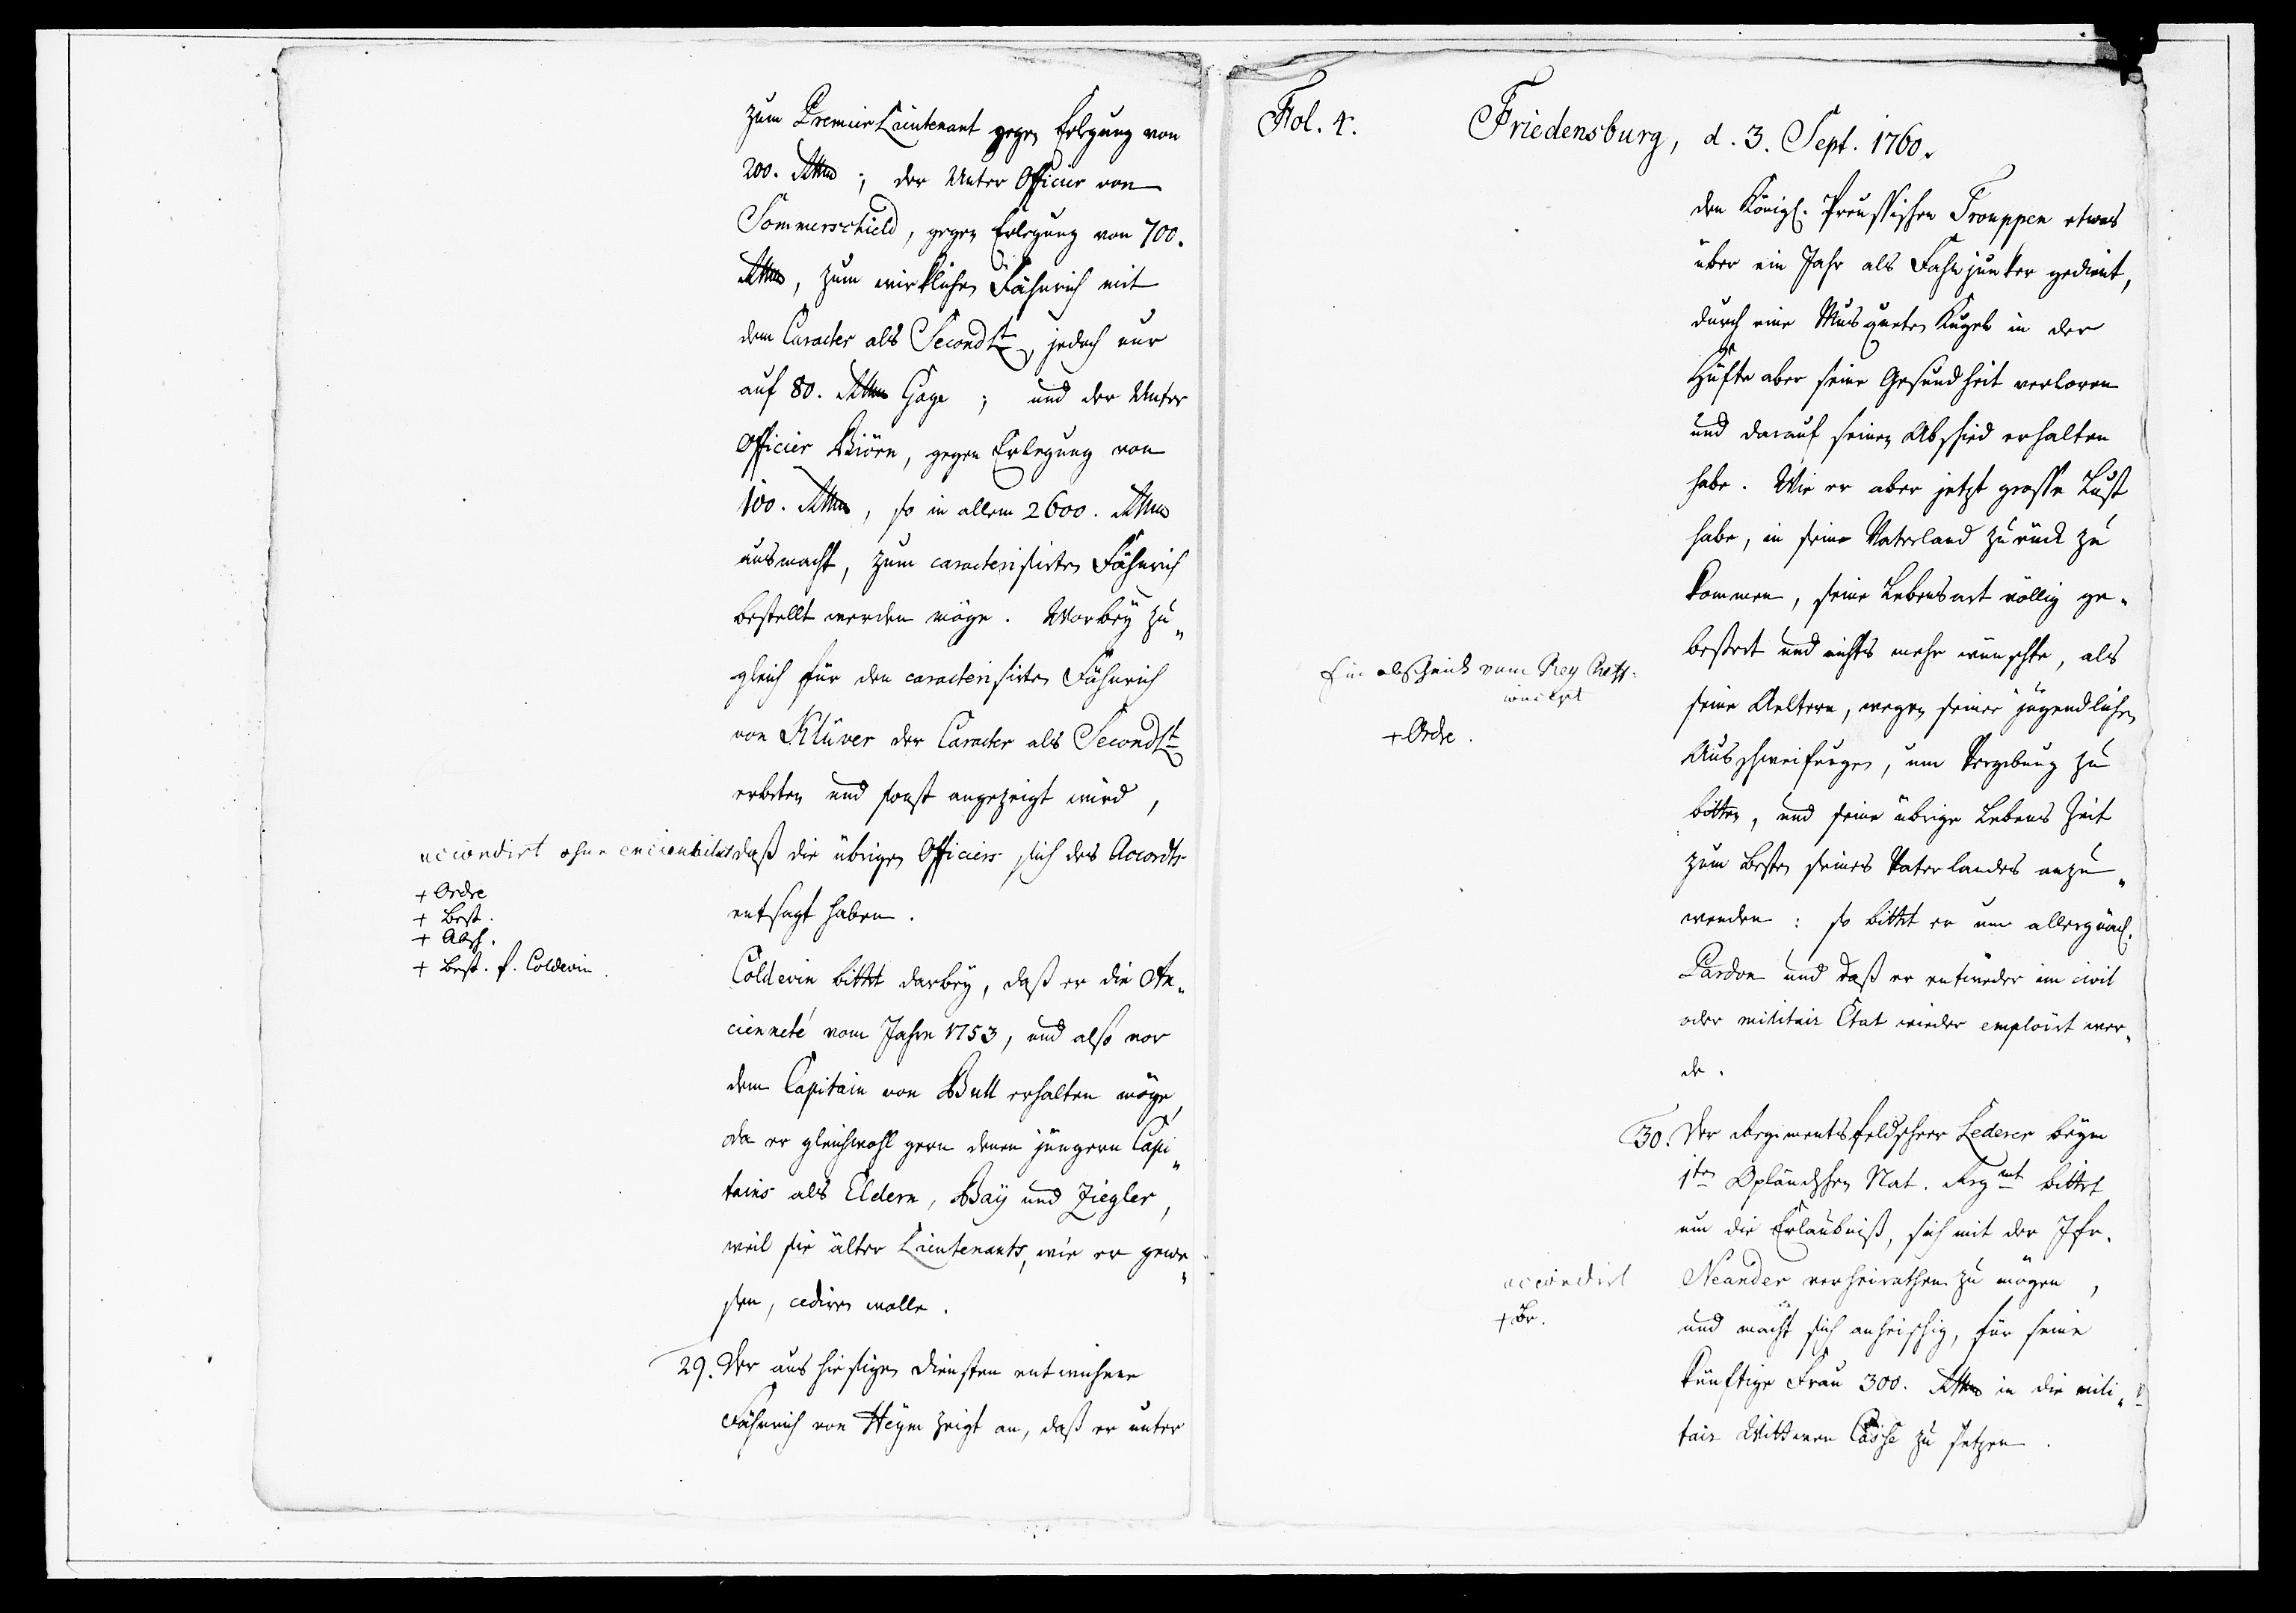 zum Premier Lieutenant gegen Erlegung von
200. Rthlr ; der Unter Officier von
Sommerschield, gegen Erlegung von 700.
Rthlr, zum wirklichen Fähnrich mit
dem Caracter als Second Lt, jedoch nur
auf 80. Rthlr Gage ; und der Unter
Officier Biörn, gegen Erlegung von
100. Rthlr, so in allem 2600. Rthlr
ausmacht, zum caracterisirten Fähnrich
bestellt werden möge. Worbey zu„
gleich für den caracterisirten Fähnrich
von Klüver der Caracter als Second Lt
erbeten und sonst angezeigt wird,
daß die übrigen Officiers sich des Accords
entsagt haben.
accordirt ohne
+ Ordre
+ Best.
+ Absch.
+ Best. f. Coldevin.
Coldevin bittet darbey, daß er die An„
cienneté vom Jahre 1753, und also vor
dem Capitain von Bull erhalten möge,
da er gleichwohl gern denen jüngern Capi„
tains als Eldern, Baÿ und Ziegler,
weil sie älter Lieutenants, wie er gewe„
sen, cediren wolle.
29. Der aus hiesigen Diensten entwichene
Fähnrich von Heÿm zeigt an, daß er unter
Fol. 4.
Friedensburg, d. 3. Sept. 1760.
den Königl. Preussischen Trouppen etwas
über ein Jahr als Fahnjunker gedient,
durch eine Musqueten Kugel in der
Hüfte aber seine Gesundheit verloren
und darauf seinen Abschied erhalten
habe. Wie er aber jetzt grosse Lust
habe, in seine Vaterland zurück zu
kommen, seine Lebensart völlig ge„
bessert und nichts mehr wünschte, als
seine Aeltern, wegen seiner jugendlichen
Ausschweifungen, um Vergebung zu
bitten, und seine übrige Lebens Zeit
zum Besten seines Vaterlandes anzu„
wenden : so bittet er um allergnäd.
Pardon und daß er entweder im civil
oder militair Etat wieder emploirt wer„
de.
Ein abscheid vom
+ Ordre.
30. Der Regimentsfeldscheer Lederer beym
1ten Opländschen Nat. Regmt bittet
um die Erlaubniß, sich mit der Jfr.
Neander verheirathen zu mögen,
und macht sich anheischig, für seine
künftige Frau 300. Rthlr in die mili„
tair Wittwen Casse zu setzen.
accordirt
+ Br.